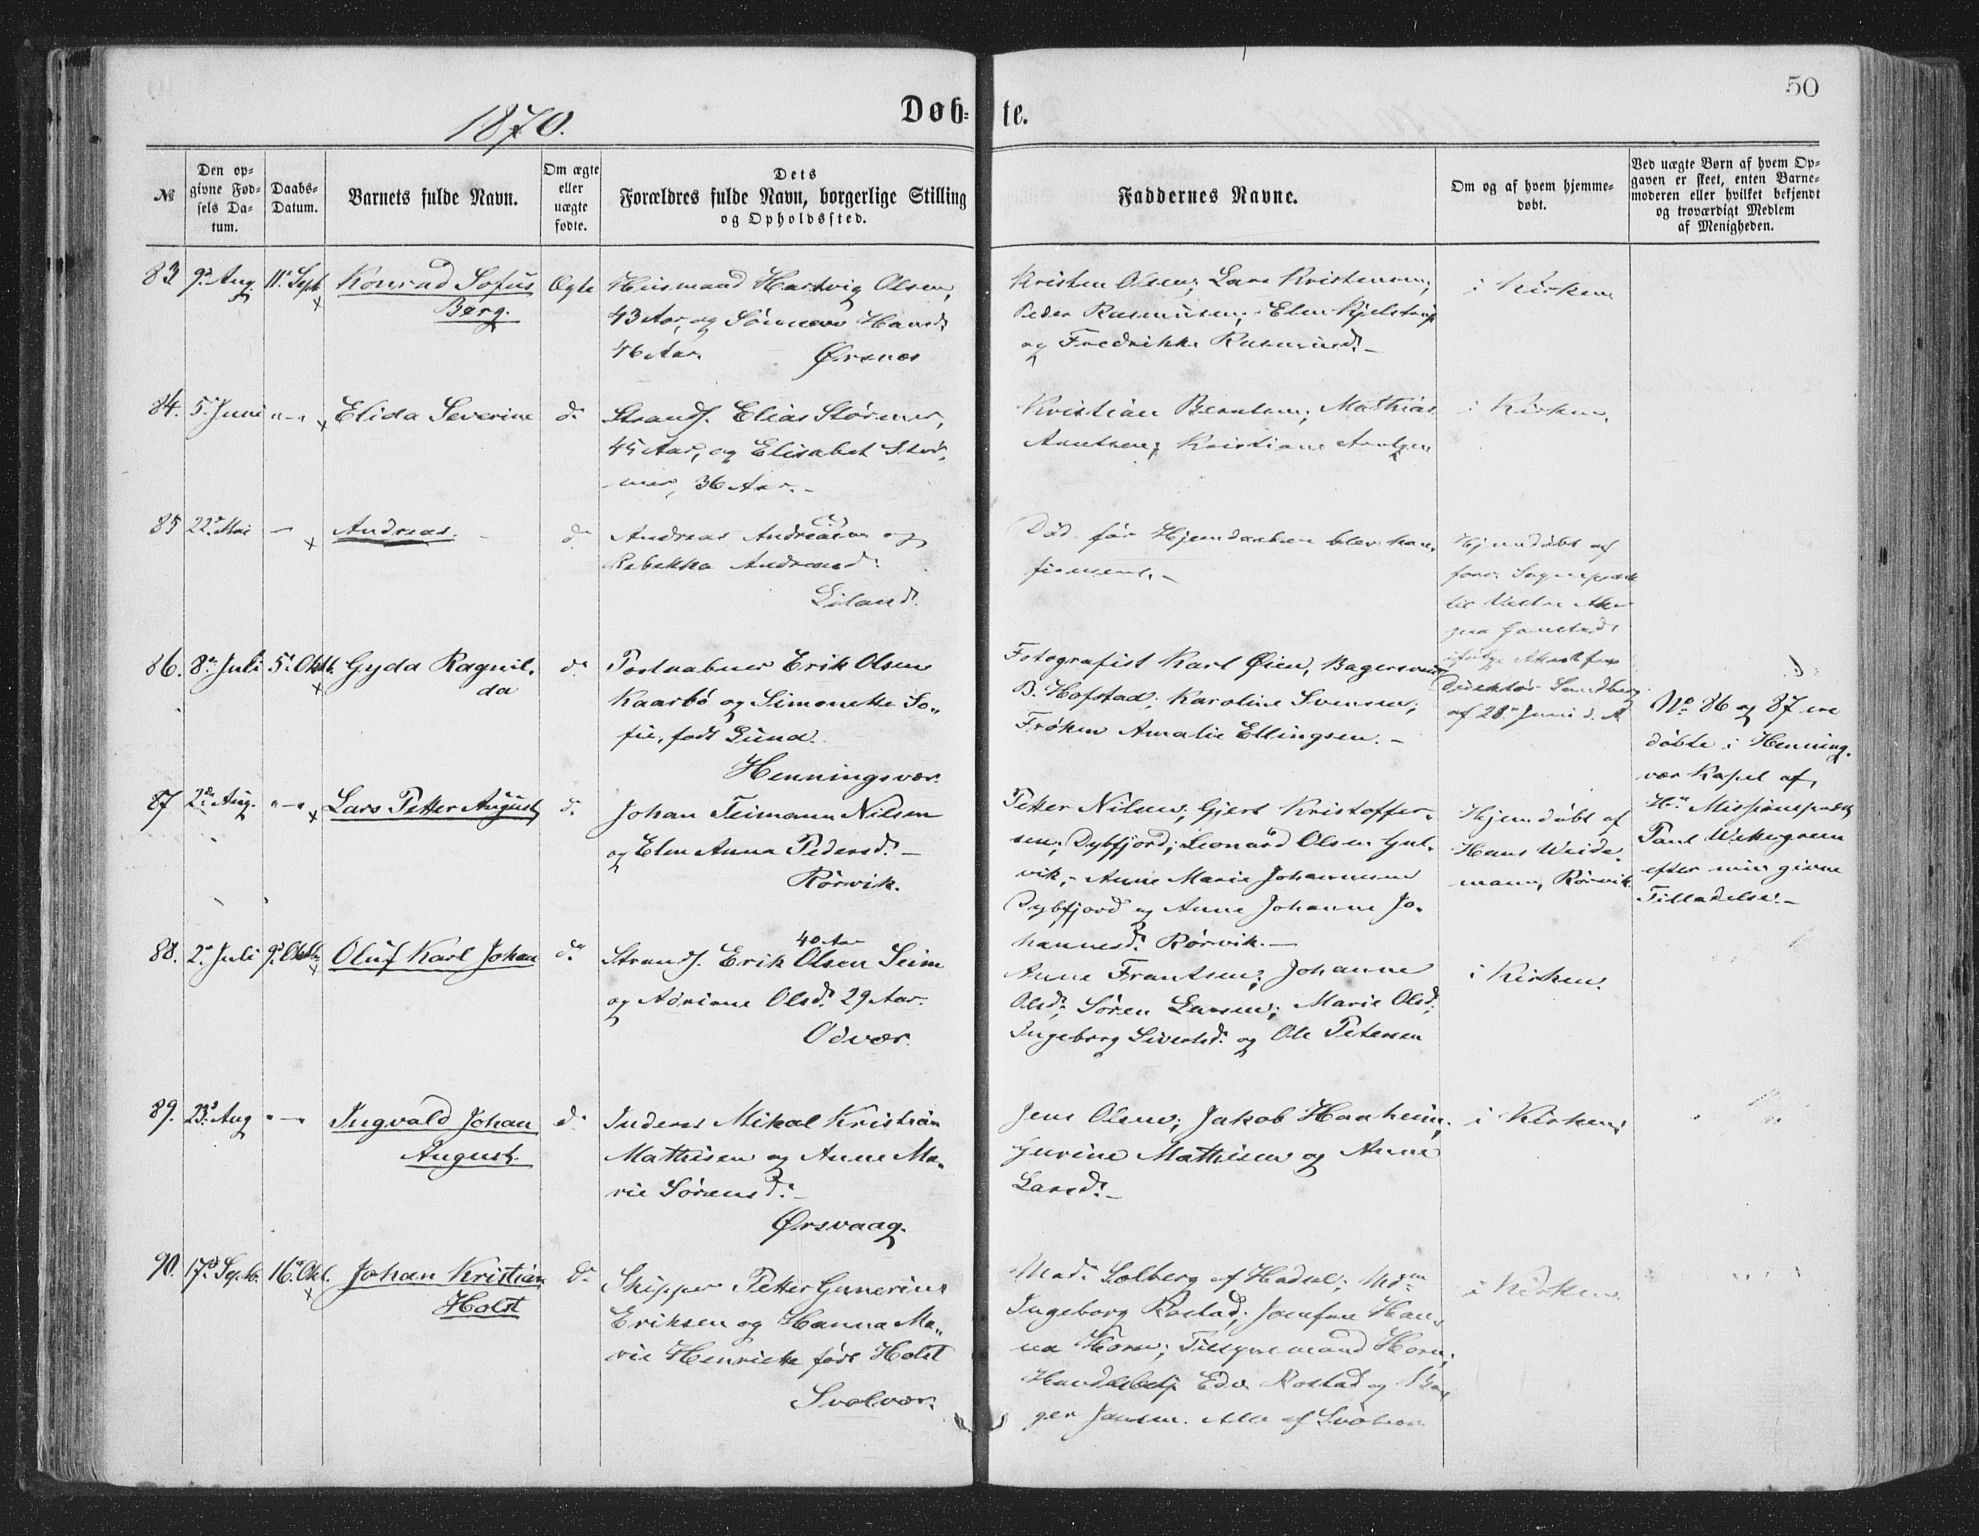 50
1870.
Døb-
te.
№
Den op-
givne Fød-
sels Da-
tum.
Daabs-
Datum.
Barnets fulde Navn.
Om ægte
eller
uægte
fødte.
Dets
Forældres fulde Navn, borgerlige Stilling
og Opholdssted.
Faddernes Navne.
Om og af hvem hjemme-
døbt.
Ved uægte Børn af hvem Op-
gaven er skeet, enten Barne-
moderen eller hvilket bekjendt
og troværdigt Medlem
af Menigheden.
83 9de Aug 11te Sept Konrad Sofus
Berg.
Ægte
Huusmand Hartvig Olsen,
43 Aar, og Hansd:
46 Aar. Ørsnes
Kristen Olsen; Lars Kristensen;
Peder Rasmussen; Elen Kjelstrup
og Fredrikke Rasmusd: –
i Kirken
84. 5te Juni "–" Elida Severine
do
Strands. Elias Størmer,
45 Aar, og Elisabet Stør-
mer, 36 Aar. –
Kristian Berntsen; Mathias
Arntsen; Kristiane Arntzen
i Kirken.
85 22de Mai – Andreas.
do
Andreas Andreassen og
Rebekka Andreasd:
Liland.
Død før Hjemdaaben blev kon-
firmeret. –
Hjemdøbt af
86. 8de Juli 5te Oktb. Gyda Ragnil-
da
do
Postaabner Erik Olsen
Kaarbø og Simonette So-
fie, født Lund.
Henningsvær.
Fotografist Karl Øien, Bagersvend
B. Hofstad; Karoline Svensen;
Frøken Amalie Ellingsen. –
Direktør Sandberg
af 28de Juni d. A.
No 86 og 87 ere
døbte i Henning-
vær Kapel af
Hr. Missionsprest
Paul Wettergreen
efter min givne
Tilladelse. –
87 2den Aug. "–" Lars Petter August
do
Johan Teimann Nilsen
og Elen Anna Pedersd: –
Rørvik.
Petter Nilsen; Gjert Kristoffer-
sen, Dybfjord; Leonard Olsen Gul-
vik; – Anne Marie Johannesen
Dybfjord og Anne Johanne Jo-
hannesd: Rørvik. –
Hjemdøbt af
Hans Weide-
mann, Rørvik
88. 2den Juli 9de Oktb Oluf Karl Johan
do
40 Aar
Strands. Erik Olsen Seim
og Adriane Olsd: 29 Aar.
Odvær.
Anne Frantsen; Johanne
Olsd; Søren Larsen; Marie Olsd;
Ingeborg Sivertsd: og Ole Petersen
i Kirken.
89. 23de Aug "–" Ingvald Johan
August.
do
Inderst Mikal Kristian
Mathisen og Anne Ma-
rie Sørensd: –
Ørsvaag.
Jens Olsen; Jakob Haaheim;
Gurine Mathisen og Anne
Larsd: –
i Kirken
90. 17de Septb. 16de Okt. Johan Kristian
Holst
do
Skipper Petter Gunerius
Eriksen og Hanna Ma-
rie Henriette født Holst
Svolvær.
Mad: Solberg af Hadsel; Mdm
Ingeborg Rostad; Jomfru Han-
na Horn; Tillynsmand Horn;
Edv. Rostad og
Jensen. Alle af Svolvær
i Kirken